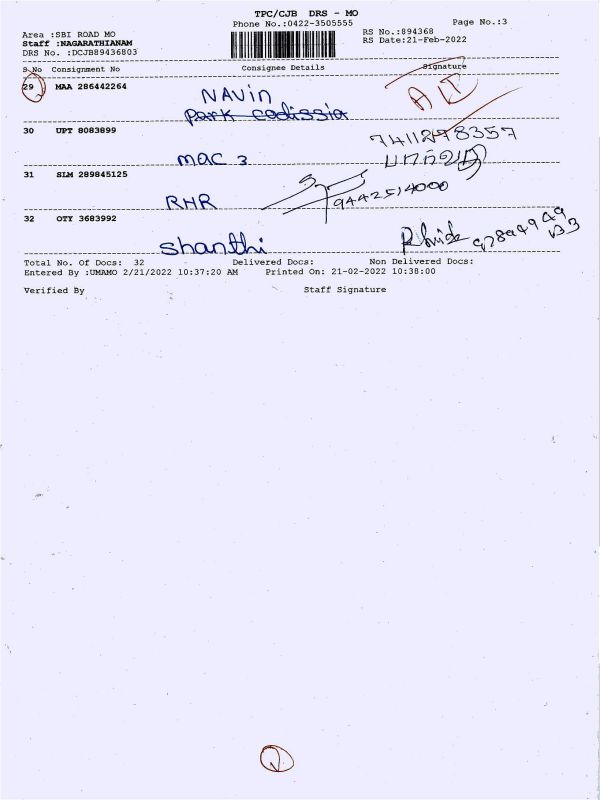 TPC/CJB DRS - MO
Phone No.:0422-3505555
Page No.:3
Area :SBI ROAD MO
RS No.:894368
Staff :NAGARATHIANAM
RS Date:21-Feb-2022
DRS No. :DCJB89436803
S.No Consignment No Consignee Details Signature
29 MAA 286442264 NAVin ALT
Park codissia
30 UPT 8083899 7411278357
mac 3
31 SLM 289845125
RHR 9442514000
32 OTY 3683992
Shanthi
Total No. Of Docs: 32 Delivered Docs: Non Delivered Docs:
Entered By :UMAMO 2/21/2022 10:37:20 AM Printed On: 21-02-2022 10:38:00
Verified By Staff Signature
2